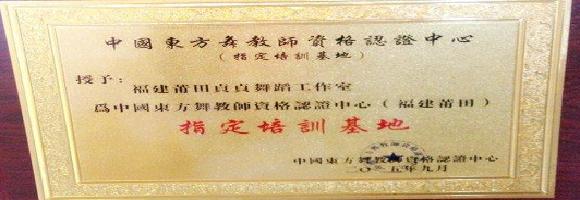 中國東方舞教師資格認證中心
（指定培訓基地）
授予：
福建莆田貞貞舞蹈工作室
為中國東方舞教師資格認證中心（福建莆田）
指定培訓基地
中國東方舞教師資格認證中心
二〇一五年九月